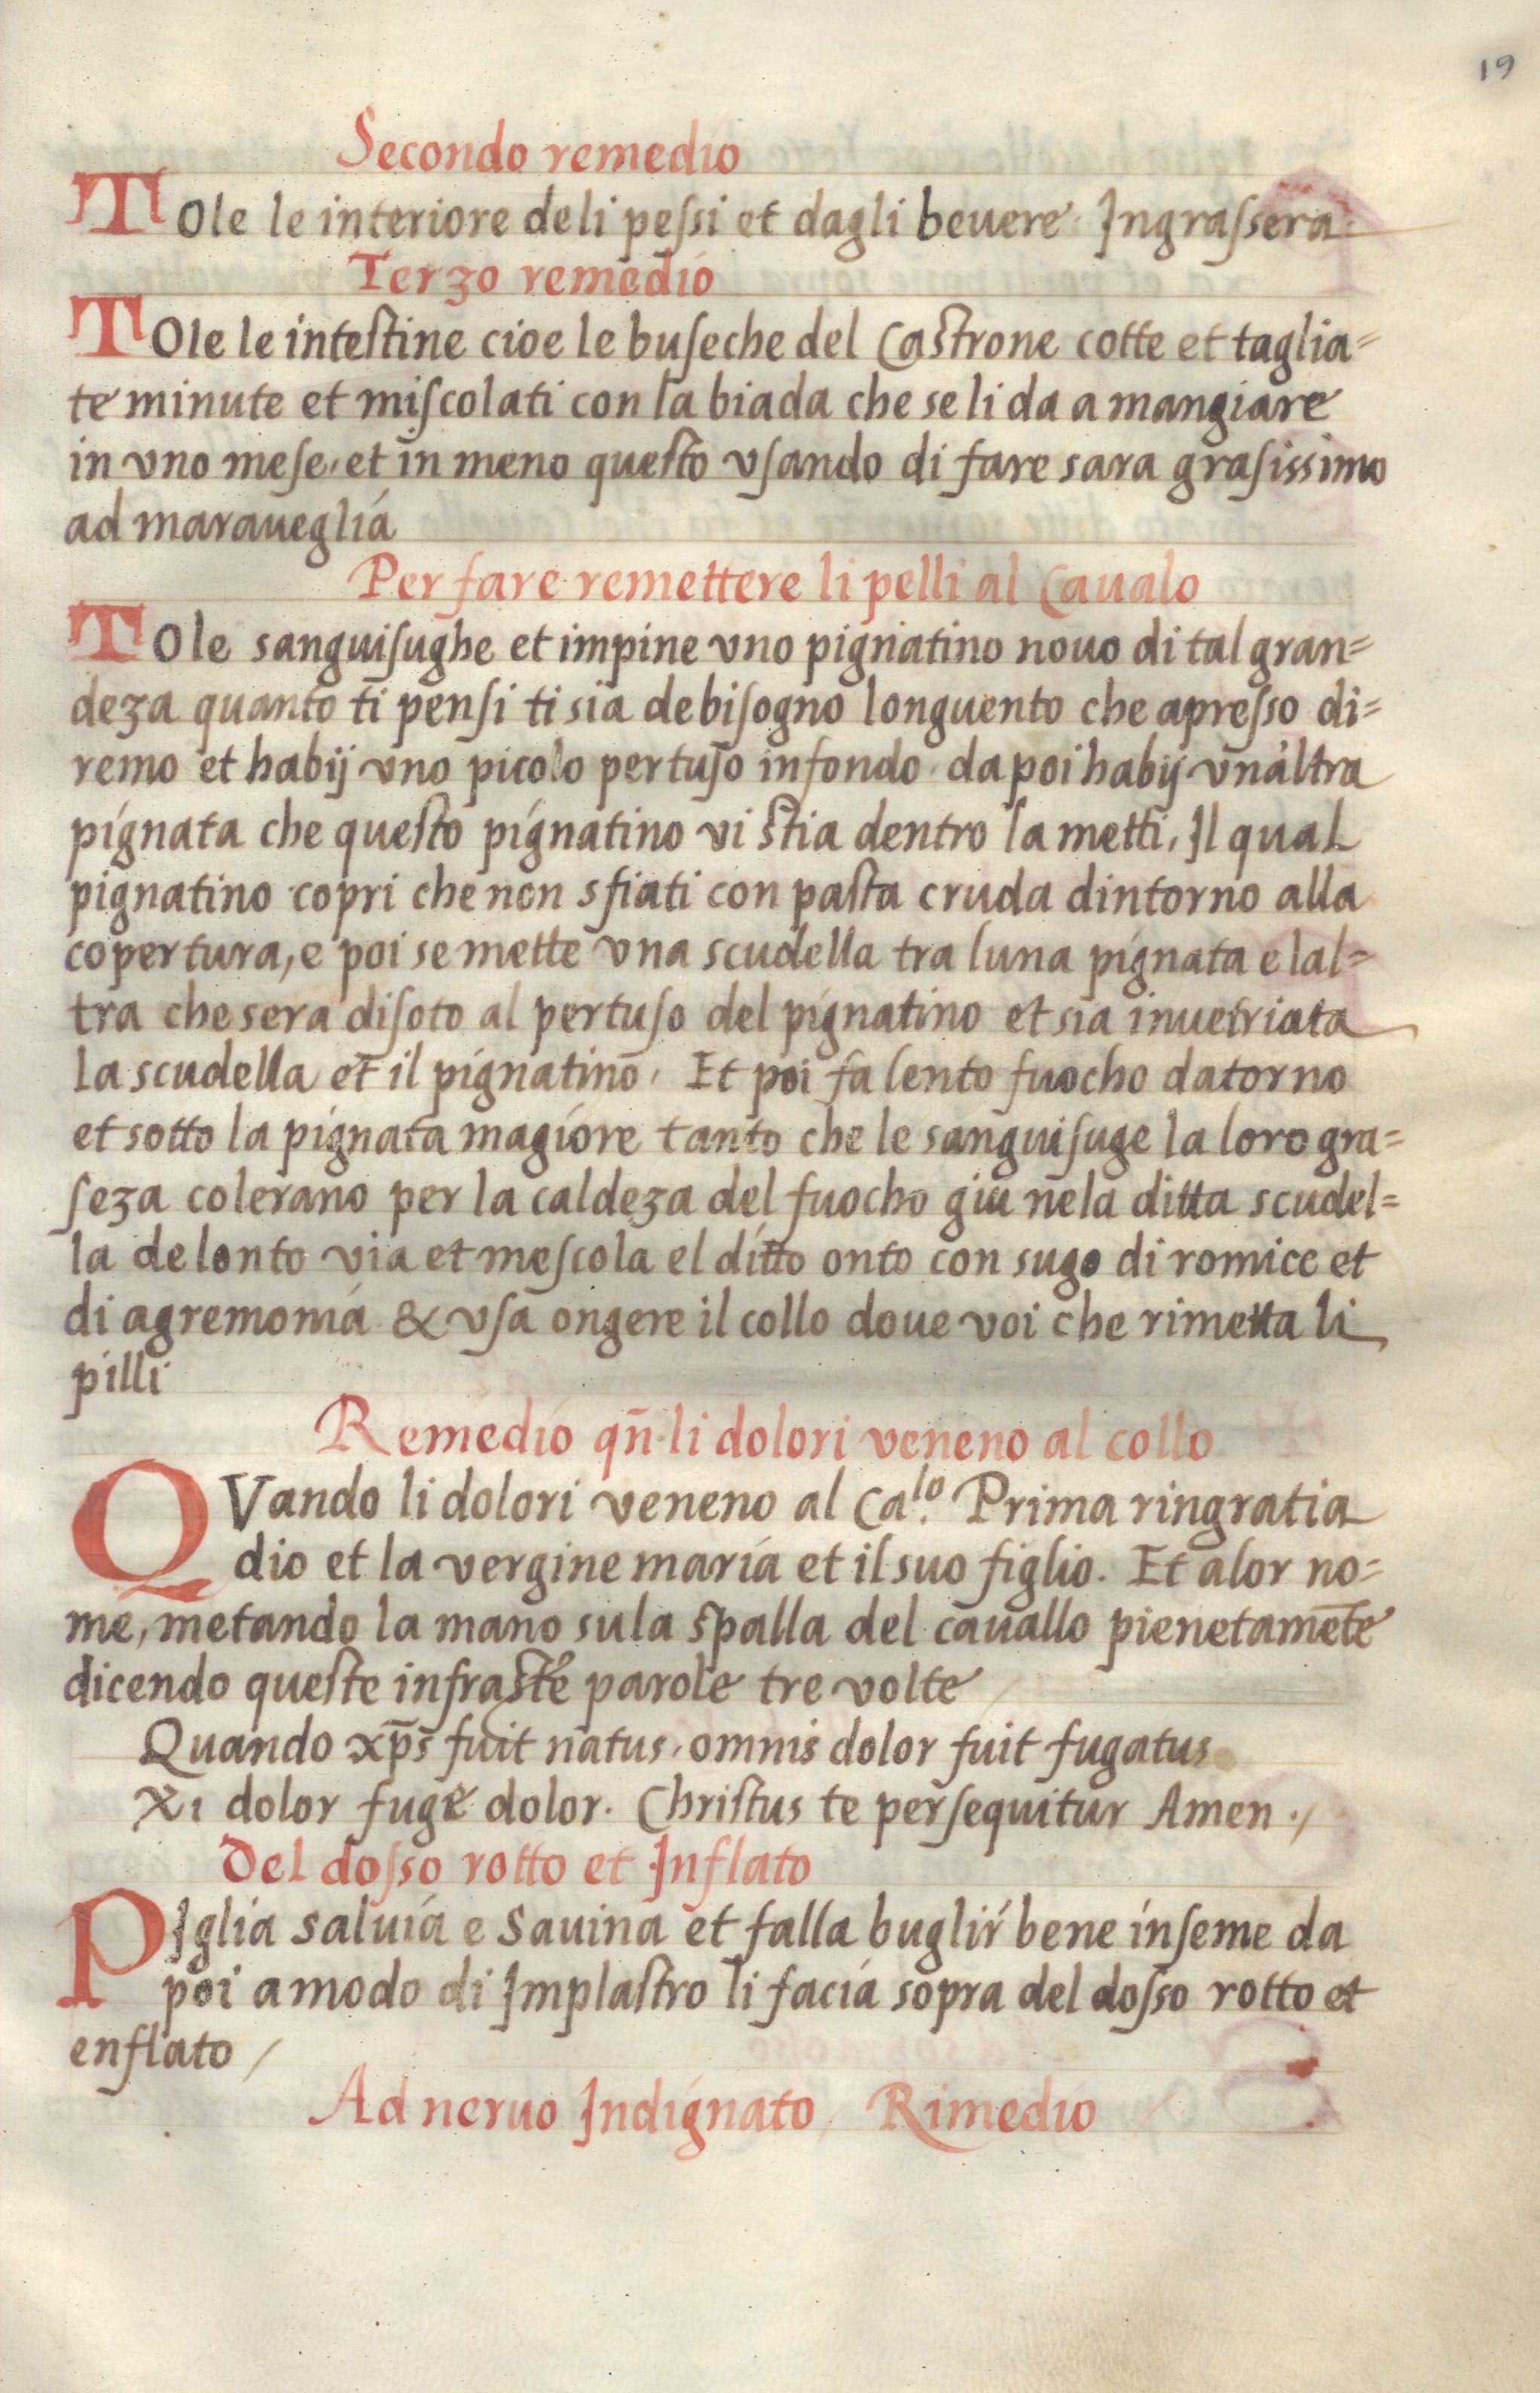 19
Secondo remedio
TOle le interiore deli pessi et dagli beuere. Ingrassera.
Terzo remedio
TOle le intestine cioe le buseche del Castrone cotte et taglia=
te minute et miscolati con la biada che se li da a mangiare
in vno mese, et in meno questo vsando di fare sara grasissimo
ad maraueglia
Per fare remettere li pelli al Caualo
TOle sanguisughe et impine vno pignatino nouo di tal gran=
deza quanto ti pensi ti sia debisogno longuento che apresso di=
remo et habij vno picolo pertuso infondo. da poi habij vn'altra
pignata che questo pignatino vi stia dentro la metti, Il qual
pignatino copri che non sfiati con pasta cruda dintorno alla
copertura, e poi se mette vna scudella tra luna pignata e lal=
tra che sera disoto al pertuso del pignatino et sia inuetriata
la scudella et il pignatino, Et poi fa lento fuocho datorno
et sotto la pignata magiore tanto che le sanguisuge la loro gra=
seza colerano per la caldeza del fuocho giu nela ditta scudel=
la de lonto via et mescola el ditto onto con sugo di romice et
di agremonia & vsa ongere il collo doue voi che rimetta li
pilli
Remedio qn̄ li dolori veneno al collo
QVando li dolori veneno al Ca.lo Prima ringratia
dio et la vergine maria et il suo figlio. Et alor no=
me, metando la mano sula spalla del cauallo pienetamēte
dicendo queste infraste parole tre volte
Quando xp̄s fuit natus, omnis dolor fuit fugatus
Xi dolor fuge dolor. Christus te persequitur Amen ./
Del dosso rotto et Inflato
PIglia saluia e Sauina et falla buglir bene inseme da
poi a modo di Implastro li facia sopra del dosso rotto et
enflato /
Ad neruo Indignato Rimedio